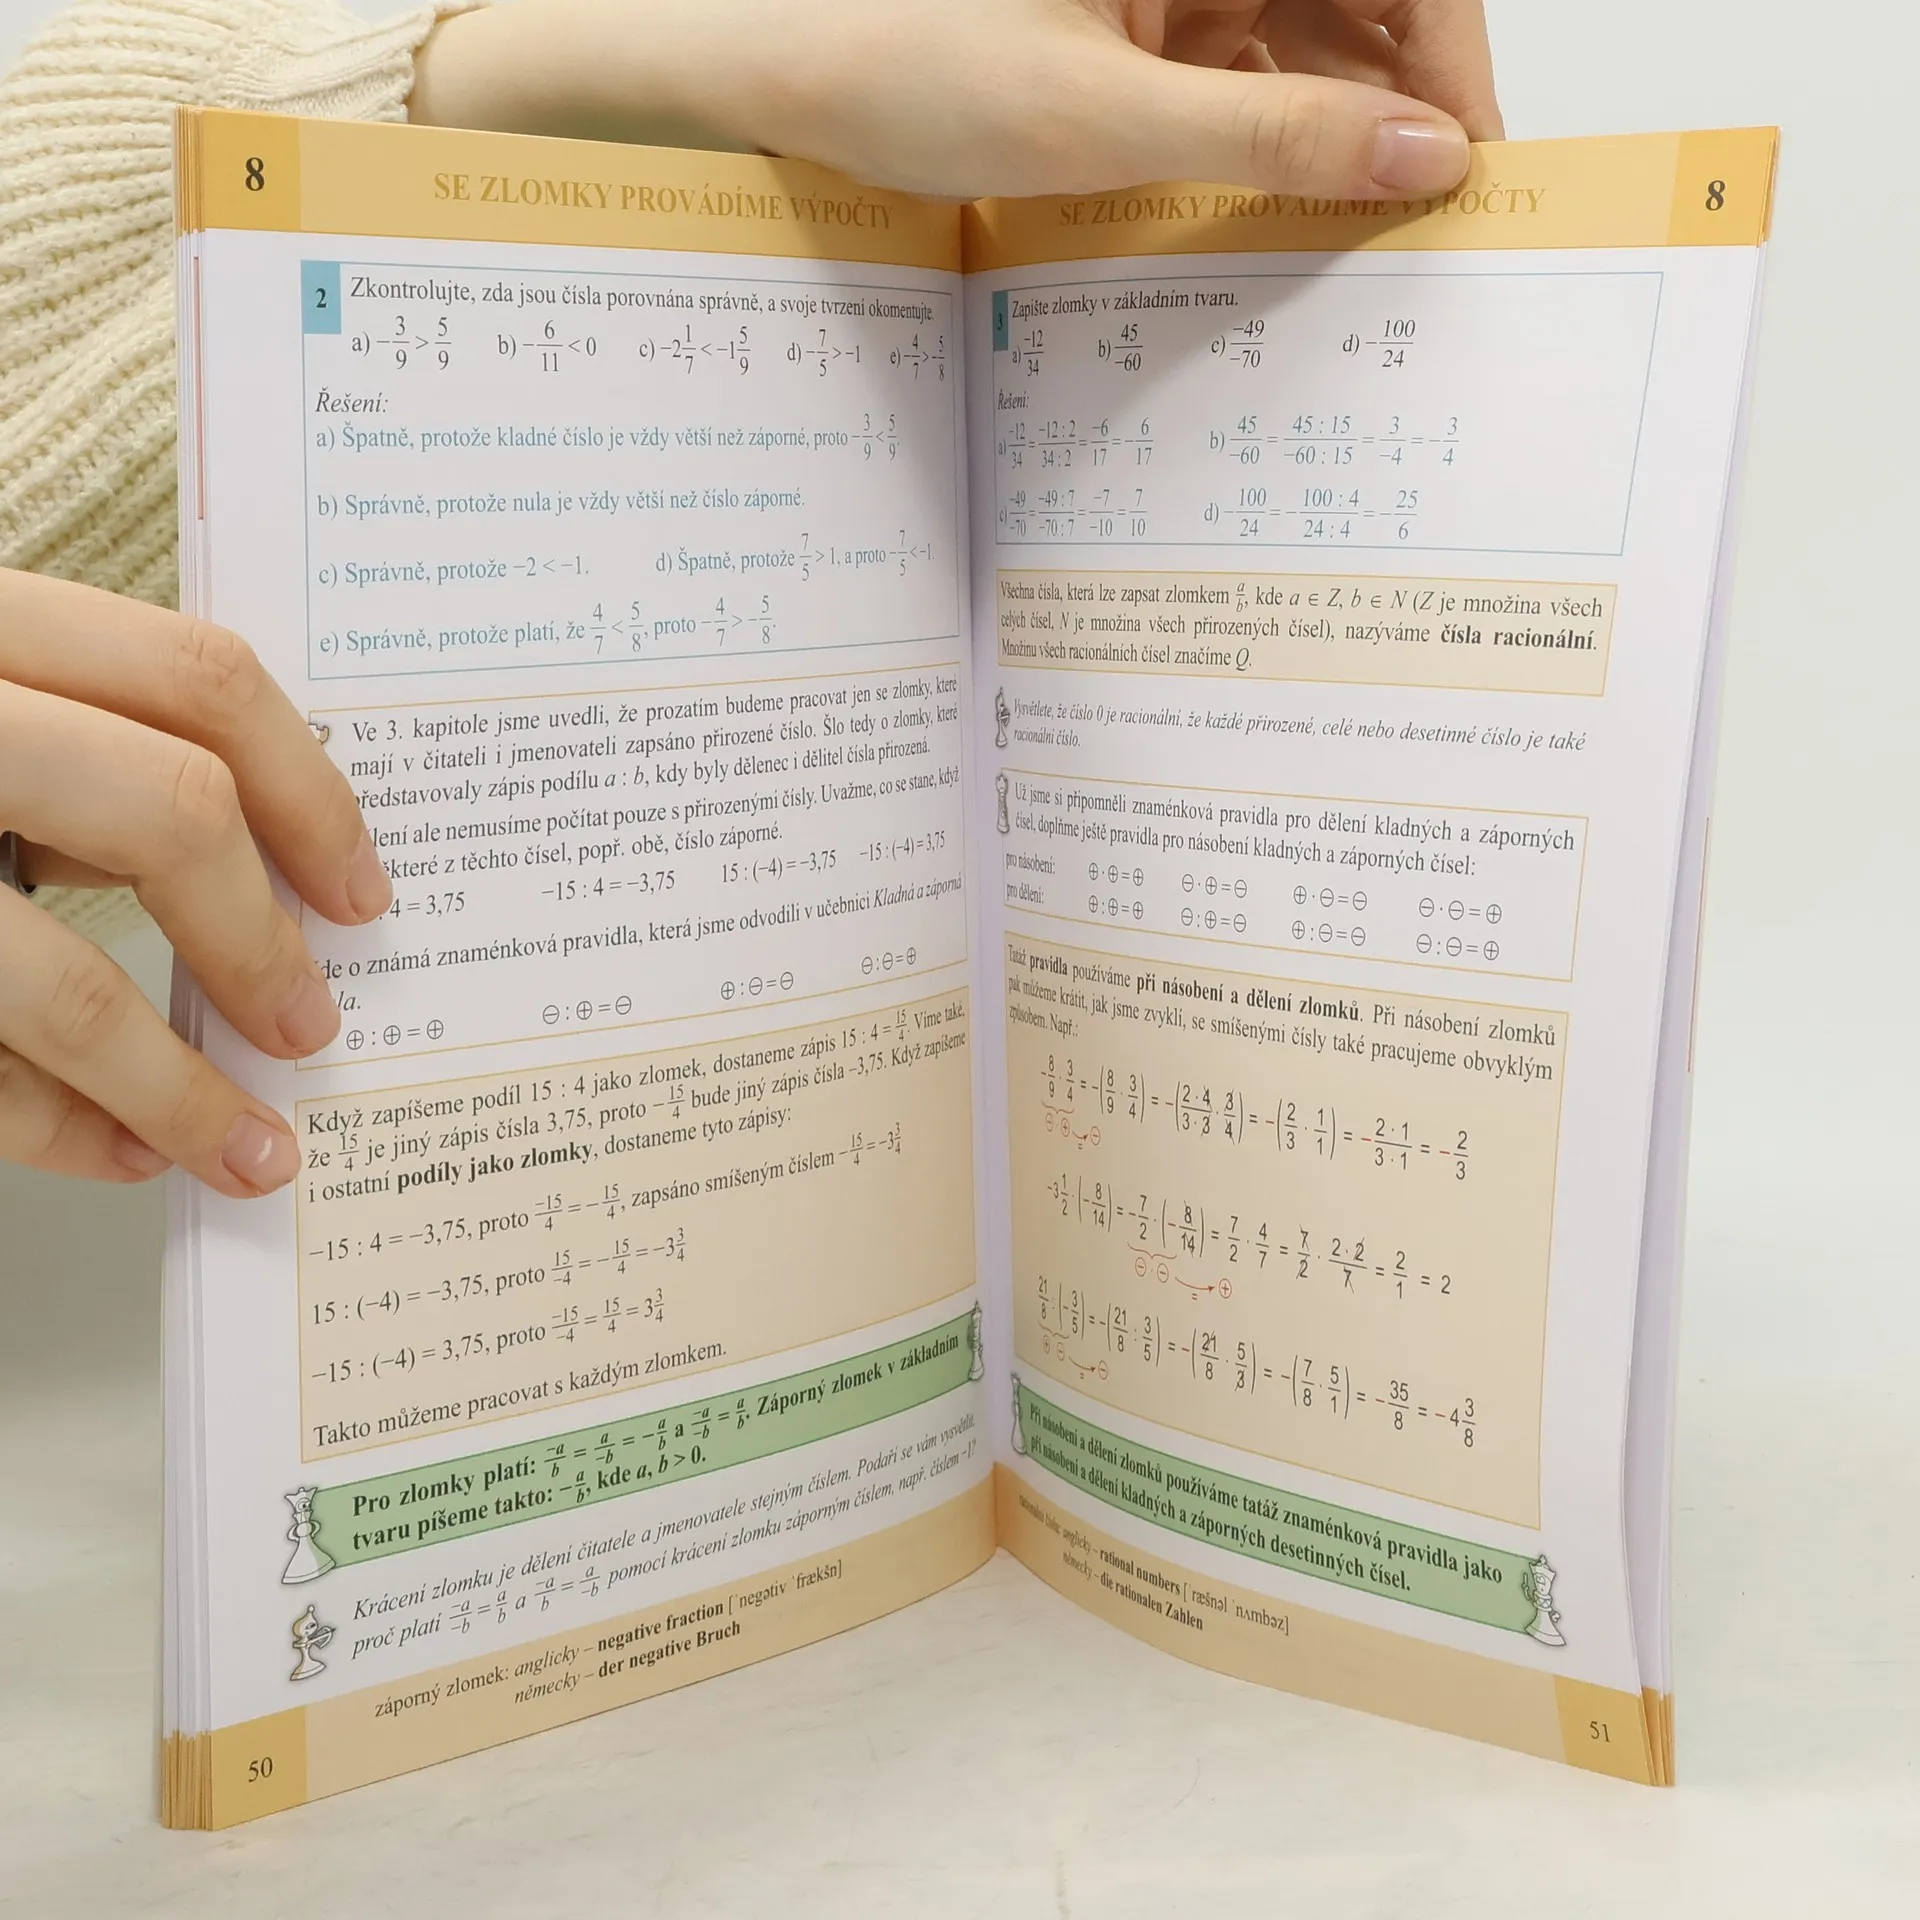 8
SE ZLOMKY PROVÁDÍME VÝPOČTY
2 Zkontrolujte, zda jsou čísla porovnána správně, a svoje tvrzení okomentujte.
a) −3/9 > 5/9 b) −6/11 < 0 c) −2 1/7 < −1 5/9 d) −7/5 > −1 e) −4/7 > −5/8
Řešení:
a) Špatně, protože kladné číslo je vždy větší než záporné, proto −3/9 < 5/9.
b) Správně, protože nula je vždy větší než číslo záporné.
c) Správně, protože −2 < −1. d) Špatně, protože 7/5 > 1, a proto −7/5 < −1.
e) Správně, protože platí, že 4/7 < 5/8, proto −4/7 > −5/8.
Ve 3. kapitole jsme uvedli, že prozatím budeme pracovat jen se zlomky, které
mají v čitateli i jmenovateli zapsáno přirozené číslo. Šlo tedy o zlomky, které
představovaly zápis podílu a : b, kdy byly dělenec i dělitel čísla přirozená.
lení ale nemusíme počítat pouze s přirozenými čísly. Uvažme, co se stane, když
které z těchto čísel, popř. obě, číslo záporné.
: 4 = 3,75 −15 : 4 = −3,75 15 : (−4) = −3,75 −15 : (−4) = 3,75
de o známá znaménková pravidla, která jsme odvodili v učebnici Kladná a záporná
la.
⊕ : ⊕ = ⊕ ⊖ : ⊕ = ⊖ ⊕ : ⊖ = ⊖ ⊖ : ⊖ = ⊕
Když zapíšeme podíl 15 : 4 jako zlomek, dostaneme zápis 15 : 4 = 15/4. Víme také,
že 15/4 je jiný zápis čísla 3,75, proto −15/4 bude jiný zápis čísla −3,75. Když zapíšeme
i ostatní podíly jako zlomky, dostaneme tyto zápisy:
−15 : 4 = −3,75, proto −15/4 = −15/4, zapsáno smíšeným číslem −15/4 = −3 3/4
15 : (−4) = −3,75, proto 15/−4 = −15/4 = −3 3/4
−15 : (−4) = 3,75, proto −15/−4 = 15/4 = 3 3/4
Takto můžeme pracovat s každým zlomkem.
Pro zlomky platí: −a/b = a/−b = −a/b a −a/−b = a/b. Záporný zlomek v základním
tvaru píšeme takto: −a/b, kde a, b > 0.
Krácení zlomku je dělení čitatele a jmenovatele stejným číslem. Podaří se vám vysvětlit,
proč platí −a/−b = a/b a −a/b = a/−b pomocí krácení zlomku záporným číslem, např. číslem −1?
záporný zlomek: anglicky – negative fraction [ˈnegətiv ˈfrækšn]
německy – der negative Bruch
50
SE ZLOMKY PROVÁDÍME VÝPOČTY
8
3 Zapište zlomky v základním tvaru.
a) −12/34 b) 45/−60 c) −49/−70 d) −100/24
Řešení:
a) −12/34 = −12 : 2/34 : 2 = −6/17 = −6/17 b) 45/−60 = 45 : 15/−60 : 15 = 3/−4 = −3/4
c) −49/−70 = −49 : 7/−70 : 7 = −7/−10 = 7/10 d) −100/24 = −100 : 4/24 : 4 = −25/6
Všechna čísla, která lze zapsat zlomkem a/b, kde a ∈ Z, b ∈ N (Z je množina všech
celých čísel, N je množina všech přirozených čísel), nazýváme čísla racionální.
Množinu všech racionálních čísel značíme Q.
Vysvětlete, že číslo 0 je racionální, že každé přirozené, celé nebo desetinné číslo je také
racionální číslo.
Už jsme si připomněli znaménková pravidla pro dělení kladných a záporných
čísel, doplňme ještě pravidla pro násobení kladných a záporných čísel:
pro násobení: ⊕ · ⊕ = ⊕ ⊖ · ⊕ = ⊖ ⊕ · ⊖ = ⊖ ⊖ · ⊖ = ⊕
pro dělení: ⊕ : ⊕ = ⊕ ⊖ : ⊕ = ⊖ ⊕ : ⊖ = ⊖ ⊖ : ⊖ = ⊕
Tatáž pravidla používáme při násobení a dělení zlomků. Při násobení zlomků
pak můžeme krátit, jak jsme zvyklí, se smíšenými čísly také pracujeme obvyklým
způsobem. Např.:
−8/9 · 3/4 = −(8/9 · 3/4) = −(2·4/3·3 · 3/4) = −(2/3 · 1/1) = −2 · 1/3 · 1 = −2/3
⊖ · ⊕ = ⊖
−3 1/2 · (−8/14) = −7/2 · (−8/14) = 7/2 · 4/7 = 7/2 · 2·2/7 = 2/1 = 2
⊖ · ⊖ = ⊕
21/8 : (−3/5) = −(21/8 : 3/5) = −(21/8 · 5/3) = −(7/8 · 5/1) = −35/8 = −4 3/8
⊕ : ⊖ = ⊖
Při násobení a dělení zlomků používáme tatáž znaménková pravidla jako
při násobení a dělení kladných a záporných desetinných čísel.
racionální čísla: anglicky – rational numbers [ˈræšnəl ˈnʌmbəz]
německy – die rationalen Zahlen
51